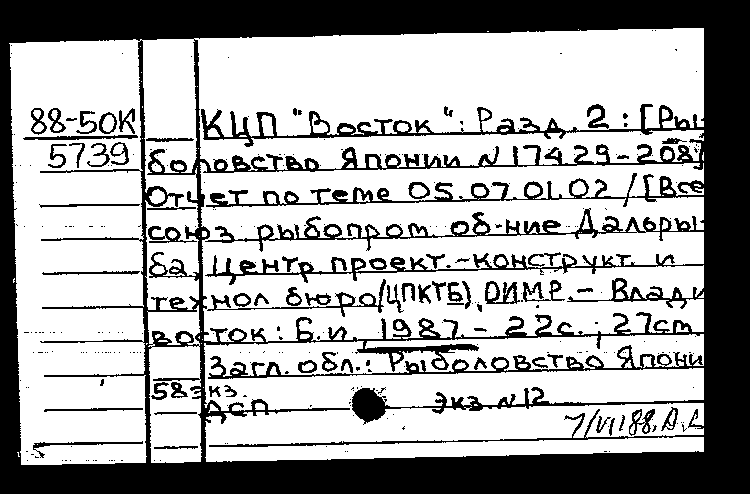 88-50К КЦП "Восток": Разд. 2: [Ры-
5739 боловство Японии N 17429-208]
Отчет по теме 05.07.01.02 / [Все
союз. рыбопром. об-ние Дальры-
ба, Центр. проект.-конструкт. и
технол бюро (ЦПКТБ), ОИМР. - Влади
восток: Б.и., 1987. - 22с.; 27см.
Загл. обл.: Рыболовство Япони
58экз.
ДСП Экз. N 12
7/VI 88. А.